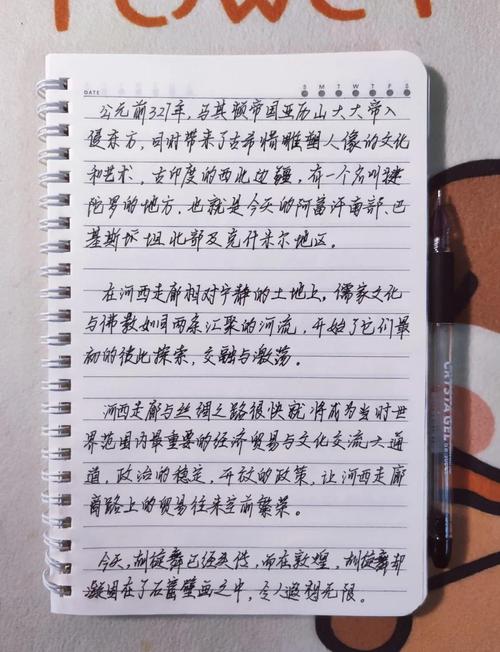 POWER
DATE
S M T W T F S
公元前327年，马其顿帝国亚历山大大帝入
侵东方，同时带来了古希腊雕塑人像的文化
和艺术，古印度的西北边疆，有一个名叫犍
陀罗的地方，也就是今天的阿富汗南部、巴
基斯坦坦北部及克什米尔地区。
在河西走廊相对宁静的土地上，儒家文化
与佛教如同两条汇聚的河流，开始了它们最
初的彼此探索，交融与激荡。
河西走廊与丝绸之路很快就将成为当时世
界范围内最重要的经济贸易与文化交流大通
道，政治的稳定，开放的政策，让河西走廊
商路上的贸易往来空前繁荣。
今天，胡旋舞已经失传，而在敦煌，胡旋舞却
凝固在了石窟壁画之中，令人遐想无限。
CRYSTA GEL